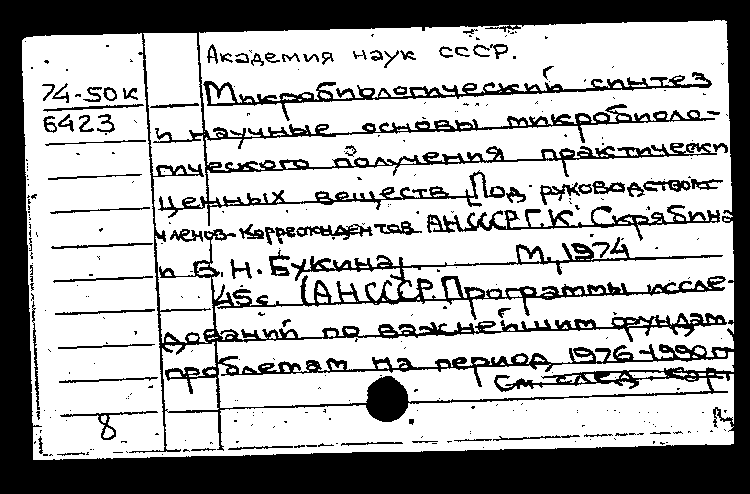 Академия наук СССР.
74-50к Микробиологический синтез
6423 и научные основы микробиоло-
гического получения практически
ценных веществ [Под руководством
членов-корреспондентов АН СССР Г.К. Скрябина
и В.Н. Букина]. М., 1974
45 с. (АН СССР. Программы иссле-
дований по важнейшим фундам.
проблемам на период 1976-1990 гг
См. след. карт
8